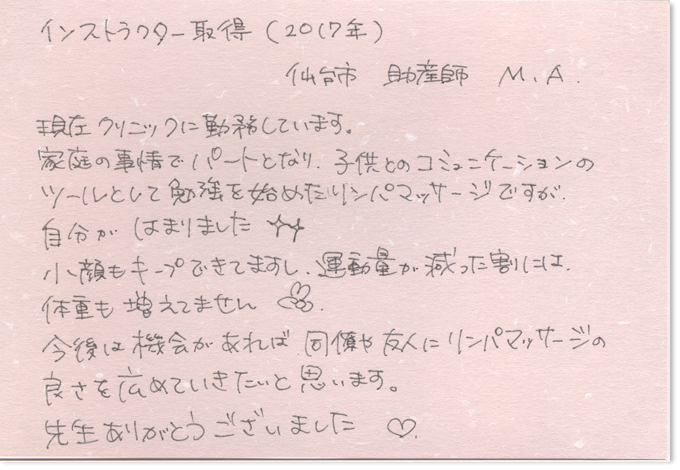 インストラクター取得(2017年)
仙台市 助産師 M.A.
現在クリニックに勤務しています。
家庭の事情でパートとなり、子供とのコミュニケーションの
ツールとして勉強を始めたリンパマッサージですが、
自分がはまりました☆☆
小顔もキープできてますし、運動量が減った割には、
体重も増えてません
今後は機会があれば同僚や友人にリンパマッサージの
良さを広めていきたいと思います。
先生ありがとうございました ♡.